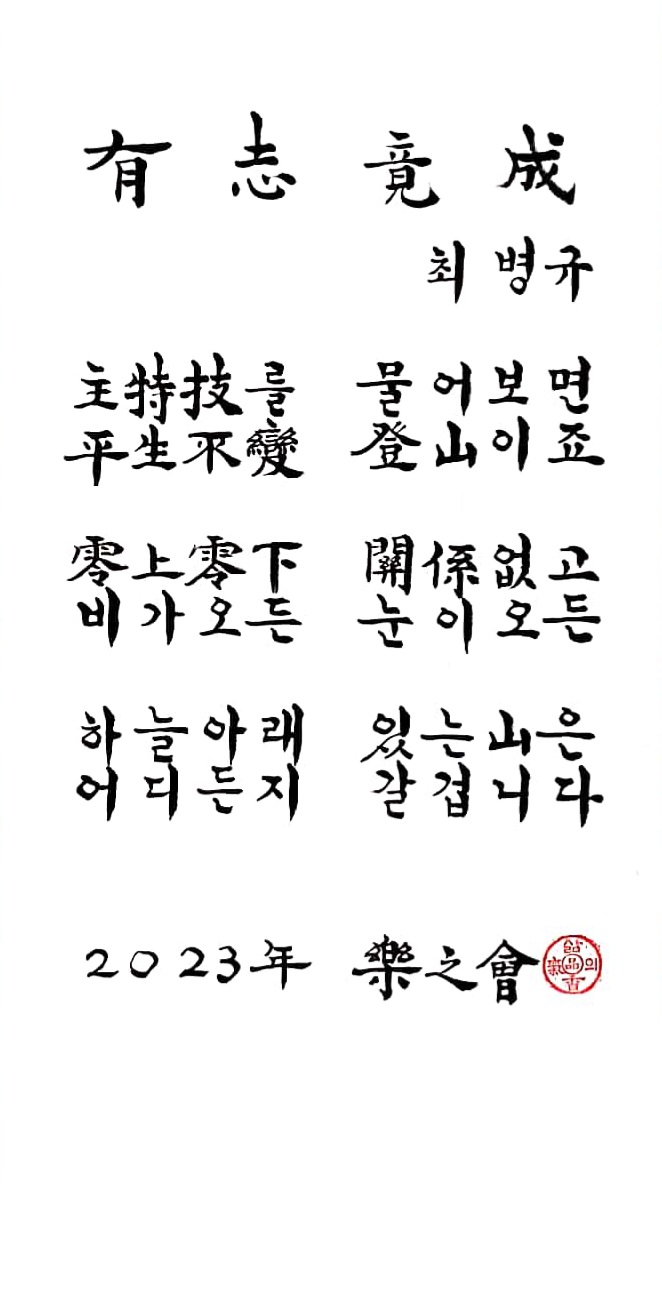 有志竟成
최병규
主特技를 물어보면
平生不變 登山이죠
零上零下 關係없고
비가오든 눈이오든
하늘아래 있는山은
어디든지 갈겁니다
2023年 樂之會